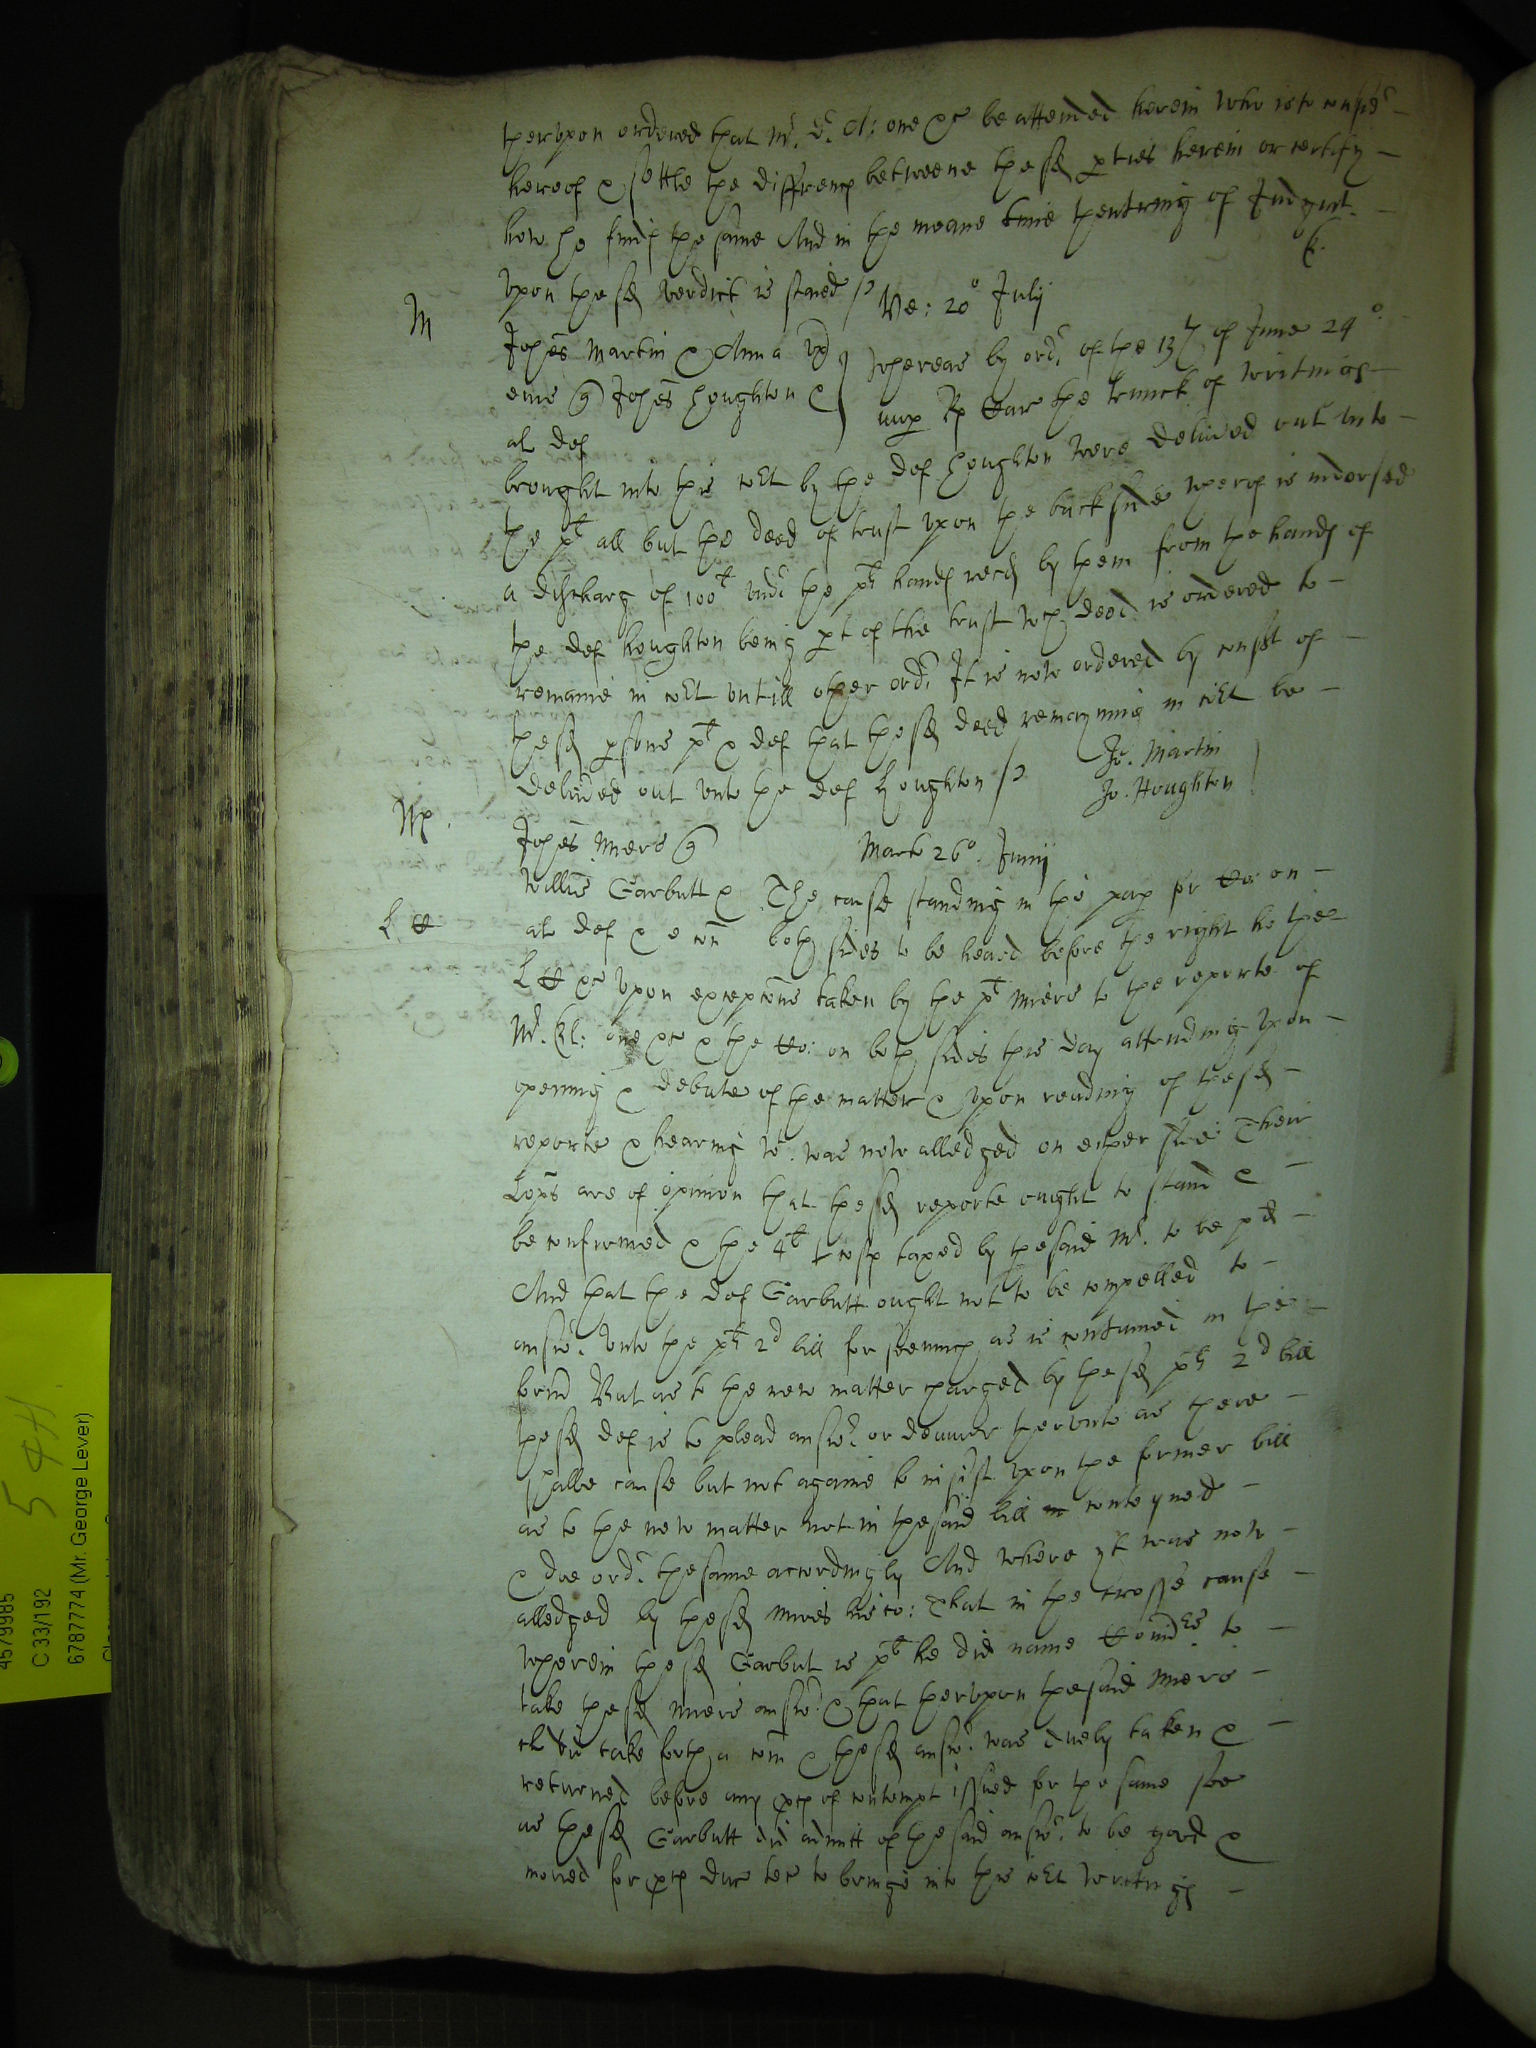 therupon ordered that Mr. Dr. A: one &c be attended herein who is to consider
hereof & settle the differenc betweene these pties herein or certify
how he finds the same And in the meane time thentring of Judgmt.
upon the sd verdict is staied
Ve: 20o July
M
Johes Martin & Anna ux
eius Johes Houghton &
al def
Whereas by ordr of the 13th of June 24o.
the trunck of writings
brought into this Cort by the def Houghton were delived out unto
the plt all but the deed of trust upon the backside wherof is indorsed
a discharg of 100l undr the plts hands recd by them from the hands of
the def Houghton being pt of the trust wch deed is ordered to
remaine in Cort untill other ordr It is now ordered by consent of
the sd psons plt & def that the sd deed remayning in Cort be
delived out unto the def Houghton
Jo. Martin
Jo. Houghton
Johes Miers
Willus Garbutt &
al def & e con
Marte 26o. Junij
The cause standing in the pap for on
both sides to be heard before the right ho the
L &c Upon excepcons taken by the plt Miers to the reporte of
Mr. one &c & the Co: on both sides this day attending upon
opening & debate of the matter & upon reading of the sd
reporte & hearing wt. was now alledged on either side Their
Lops are of opinion that the sd reporte ought to stand &
be confirmed & the 4l costs taxed by the said Mr. to be pd
And that the def Garbutt ought not to be compelled to
answr. unto the plts 2d bill for soemuch as is contained in the
form But as to the new matter charged by the sd plts 2d bill
the sd def is to plead answr. or demurr therunto as there
shalbe cause but not againe to insist upon the former bill
as to the new matter not in the said bill conteyned
& doe ordr. the same accordingly And where yt was now
alledged by the sd Miers his co: That in the crosse cause
wherein the sd Garbut is plt he did name to
take the sd Miers answr. & that therupon the said Miers
did take forth a com & the sd answr. was duely taken &
returned before any pces of contempt issued for the same soe
as the sd Garbutt did admitt of the said answr. to be good &
moved for pces duc tec to bringe into this Cort writings
54H
4579985
C 33/192
6787774 (Mr. George Lever)